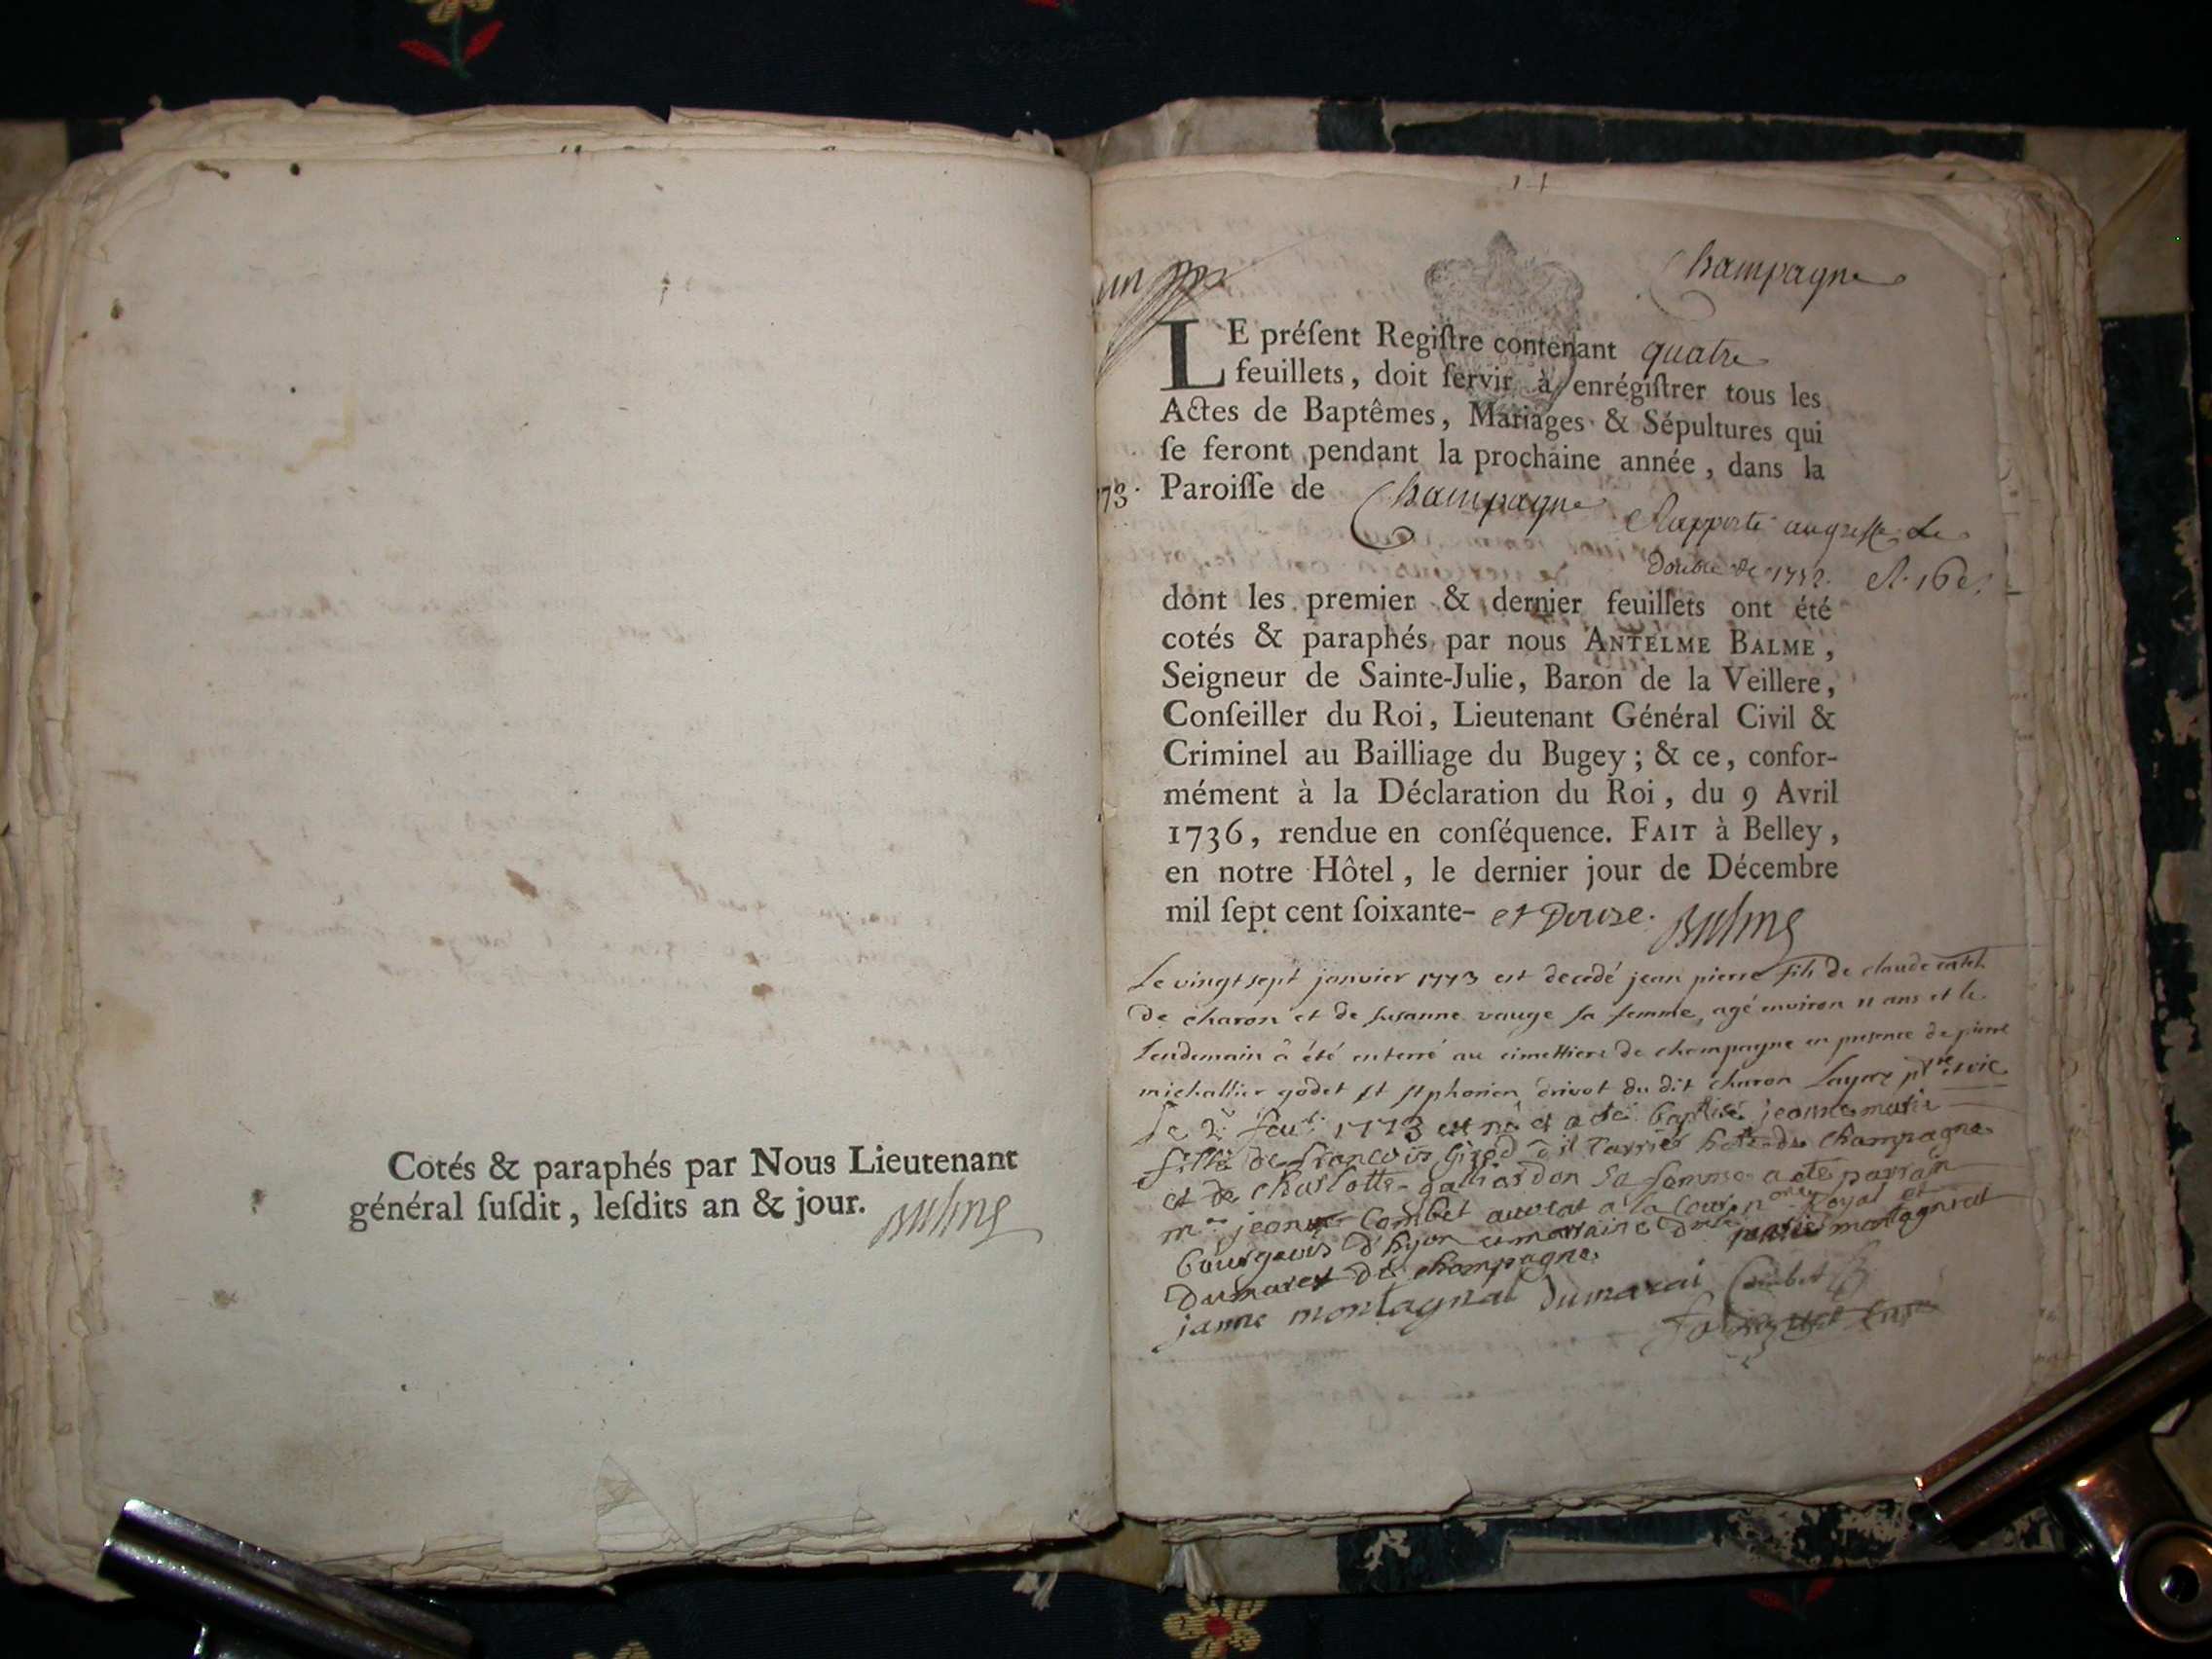 Cotés & paraphés par Nous Lieutenant
général ſuſdit, leſdits an & jour.
Balme
Champagne
LE préſent Regiſtre contenant quatre
feuillets, doit ſervir à enrégiſtrer tous les
Actes de Baptêmes, Mariages & Sépultures qui
ſe feront pendant la prochaine année, dans la
73. Paroiſſe de Champagne
Rapporté au greffe le
double de
dont les premier & dernier feuillets ont été
cotés & paraphés par nous ANTELME BALME,
Seigneur de Sainte-Julie, Baron de la Veillere,
Conſeiller du Roi, Lieutenant Général Civil &
Criminel au Bailliage du Bugey; & ce, confor-
mément à la Déclaration du Roi, du 9 Avril
1736, rendue en conſéquence. FAIT à Belley,
en notre Hôtel, le dernier jour de Décembre
mil ſept cent ſoixante- et Douze. Balme
Le vingt sept janvier 1773 est decedé jean pierre fils de claude
De charon et de susanne vauge sa femme, agé environ 11 ans et le
lendemain à été enterré au cimettiere de champagne en presence de pierre
michallier godet et du dit charon
Le 2 1773 est né et a été baptisé jeanne marie
fille de francois Girod dit hote de champagne
et de charlotte galliardon sa femme a été parrain
jean combet avocat a la cour royal et
bourgeois et marraine marie montagnat
Dumarest de champagne
janne montagnat dumarai Combet